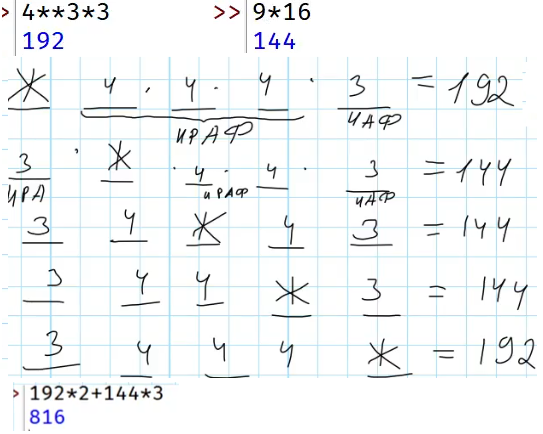 > 4**3*3 >> 9*16
192 144
Ж 4 · 4 · 4 · 3 = 192
ИРАФ ИАФ
3 · Ж · 4 · 4 · 3 = 144
ИРА ИРАФ ИАФ
3 4 Ж 4 3 = 144
3 4 4 Ж 3 = 144
3 4 4 4 Ж = 192
> 192*2+144*3
816